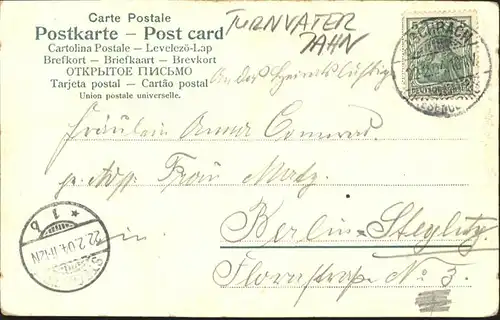 Carte Postale
Postkarte - Post card
Cartolina Postale - Levelezö-Lap
Brefkort - Briefkaart - Brevkort
ОТКРЫТОЕ ПИСЬМО
Tarjeta postal - Cartão postal
Union postale universelle.
TURNVATER
JAHN
5
Fräulein Anna
p. Adr. Frau
in
Berlin-Steglitz
Florastraße No 3.
* 1 b
22.2.04.11-12N